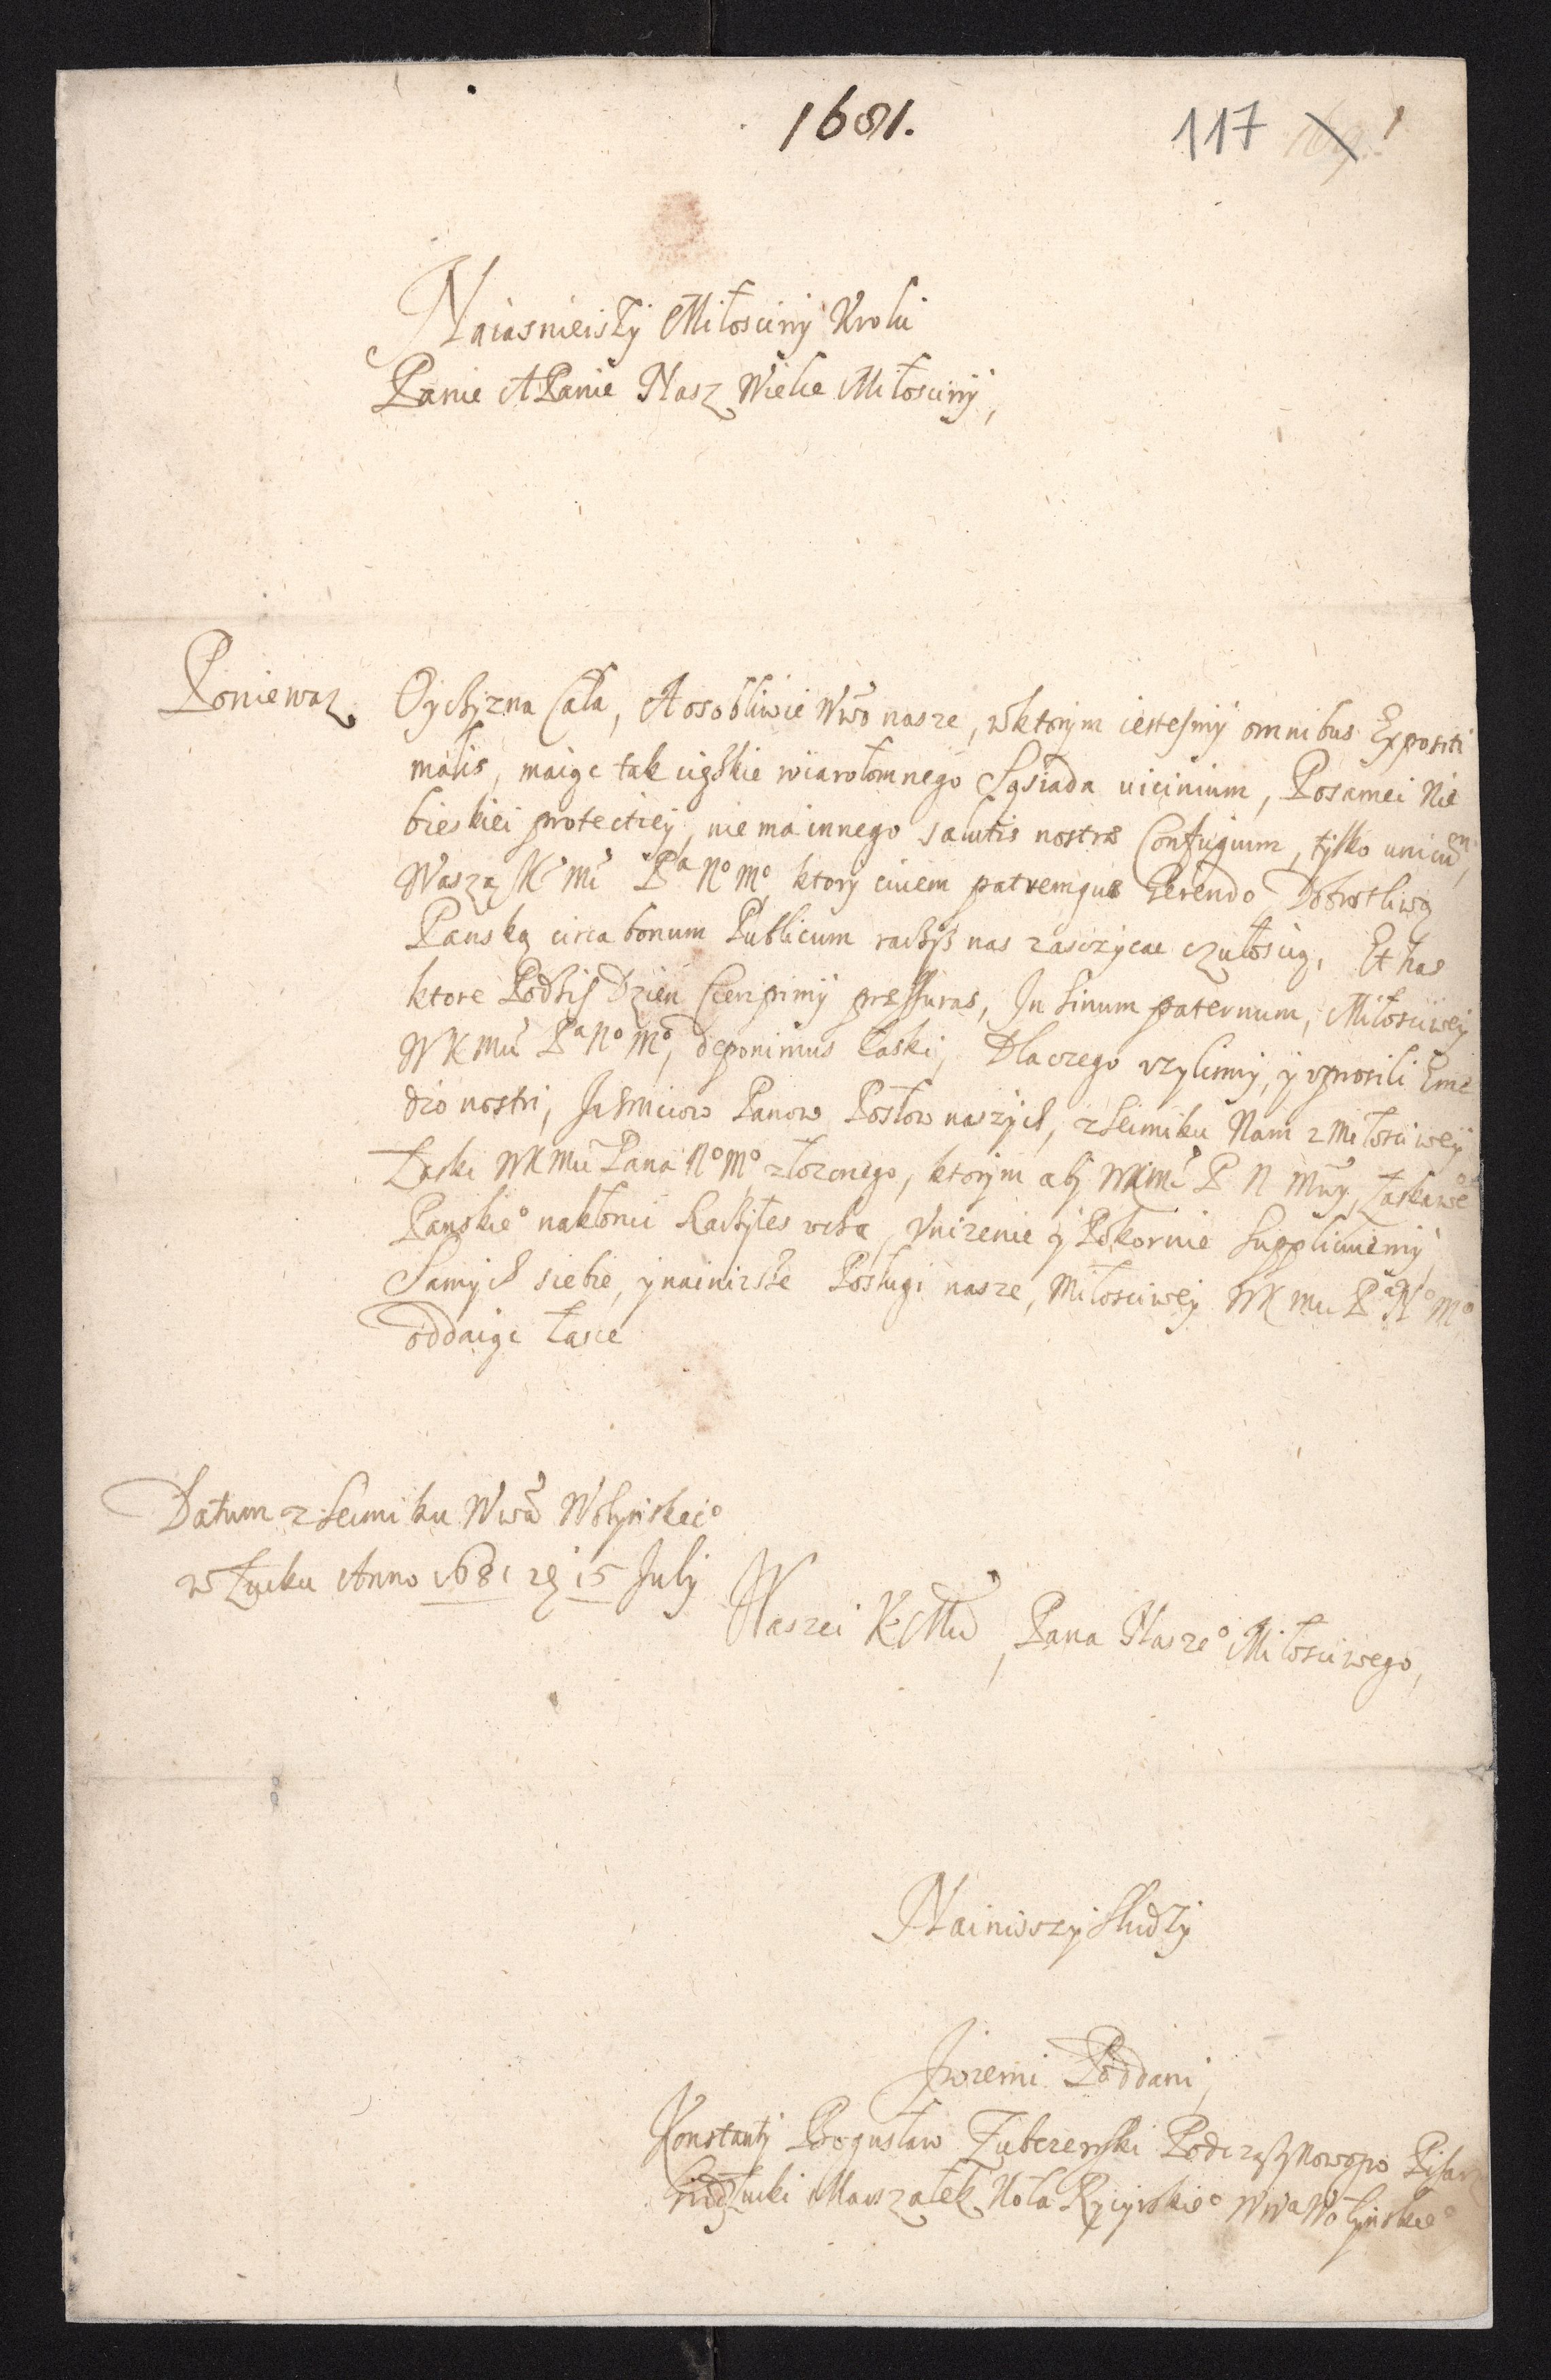 1681.
117
Naiasnieiszy Miłosciwy Krolu
Panie A Panie Nasz Wielce Miłosciwy,
Poniewaz Oyczyzna Cała, A osobliwie Wwo nasze, wktorym iestesmy omnibus Expositi
malis, maiąc tak cięszkie wiarołomnego Sąsiada uicinium, Posamei Nie
bieskiei protectiey, niema innego salutis nostræ Confugium, tylko unicum,
Waszą K Mć Pa No Mo ktory ciuem patremque Gerendo Dobrotliwą
Panską circa bonum Publicum raczysz nas zasczycac czułoscią, Et has
ktore Podziś Dzien Cierpimy pressuras, In Sinum paternum, Miłosciwey
WKMci Pa No Mo, deponimus Łaski, Dlaczego uzylismy, y uprosili E me
dio nostri, Ichmciow Panow Posłow naszych, z Seimiku Nam z Miłosciwey
Łaski WKMci Pana No Mo złozonego, ktorym aby WKMć P N Mwy, Łaskawe
Panskieo nakłonić Raczyłes ucha, Unizenie y Pokornie Supplicuiemy,
Samych siebie, y nainizsze Posługi nasze, Miłosciwey WKMci Pa No Mo
oddaiąc łasce
Datum z Seimiku Wwa Wołynskieo
w Łucku Anno 1681 die 15 July
Waszei K Mci, Pana Naszeo Miłosciwego,
Nainisszy Słudzy
Poddani,
Konstanty Bogusław Podczaszy Pisarz
Łucki Marszałek Koła Rycyrskieo Wwa Wołynskieo